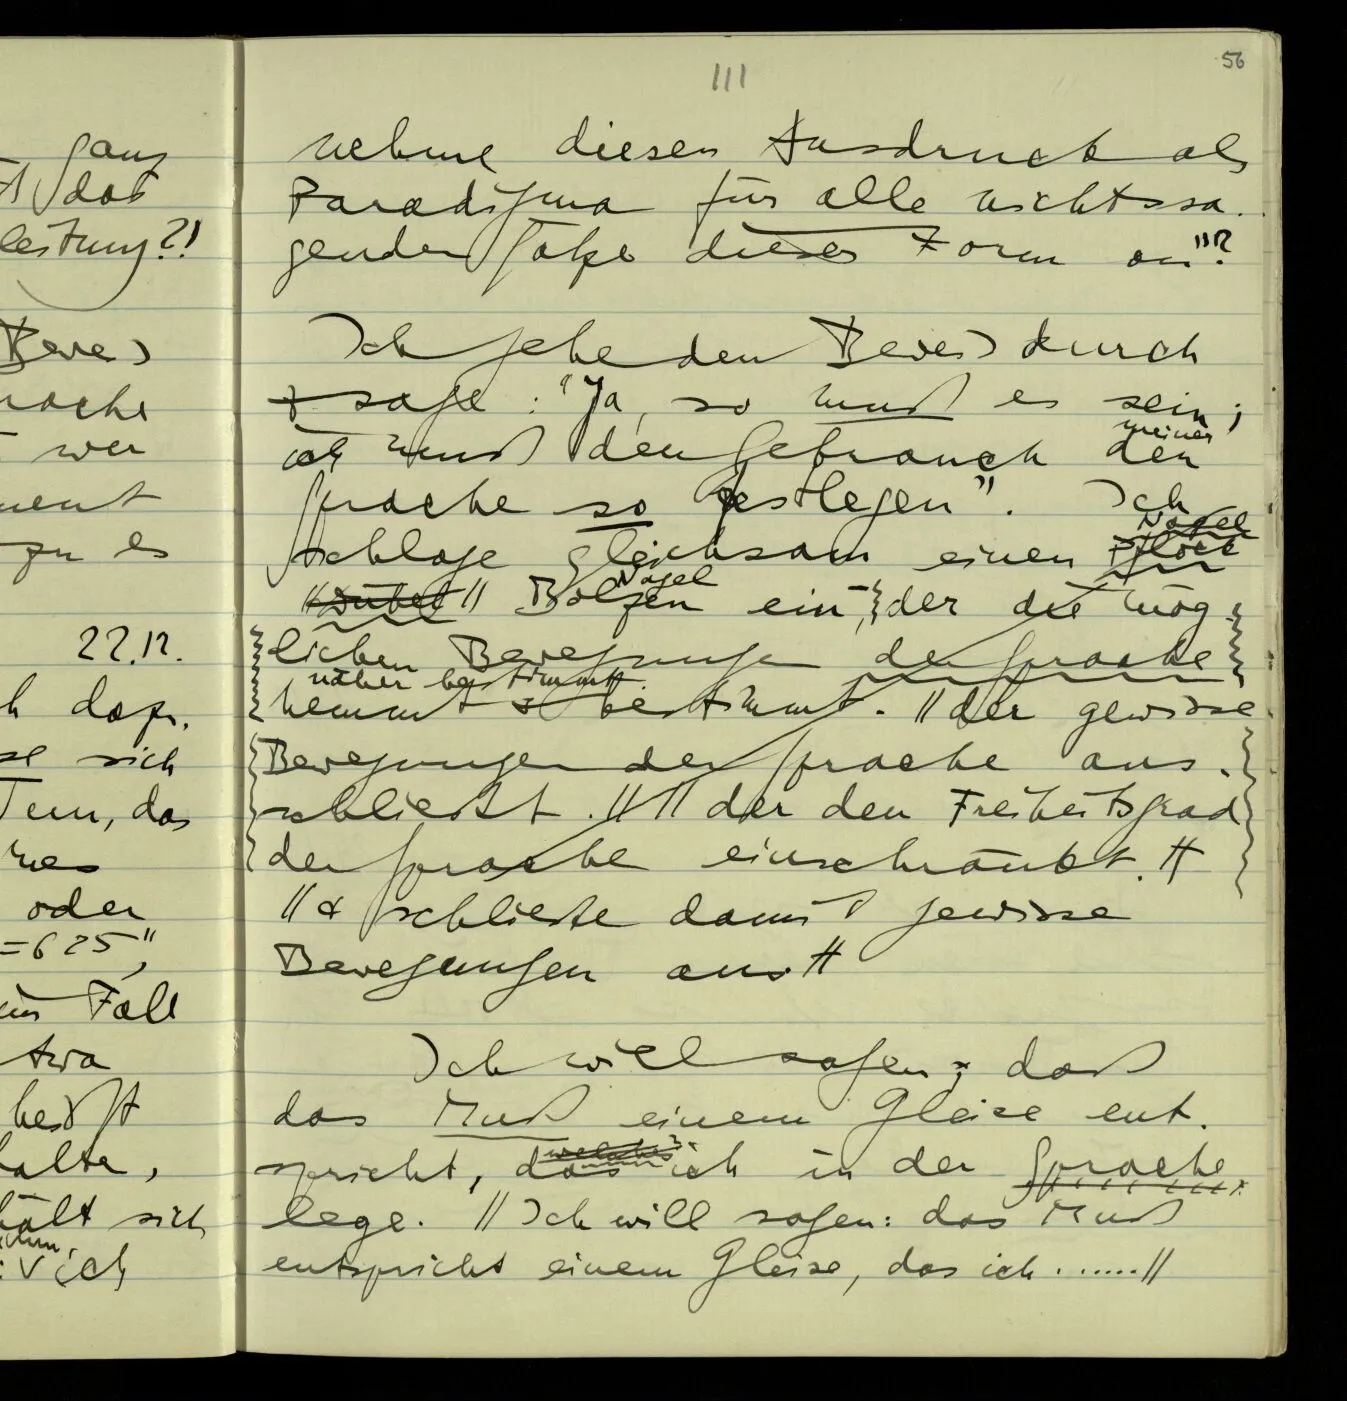 56
111
nehme diesen Ausdruck als
Paradigma für alle nichtssa-
genden Sätze dieser Form an"?
Ich gehe den Beweis durch
& sage: "Ja, so muß es sein;
ich muß den Gebrauch den
meiner
Sprache so festlegen". Ich
Nagel
schlage gleichsam einen Pflock
Nagel
"Dübel" Bolzen ein, der die mög-
lichen Bewegungen der Sprache
näher bestimmt
hemmt & bestimmt. //der gewisse
Bewegungen der Sprache aus-
schließt.// //der den Freiheitsgrad
der Sprache einschränkt.//
//& schließe damit gewisse
Bewegungen aus//
Ich will sagen: daß
das Muß einem Gleise ent-
welches
spricht, das ich in der Sprache
lege. //Ich will sagen: das Muß
entspricht einem Gleise, das ich ......//
ganz
das
leistung?!
Bewei
rache
wer
ment
zu es
22.12.
daß
sich
Tun, das
oder
=625",
Fall
etwa
heißt
halte,
hält sich
ich